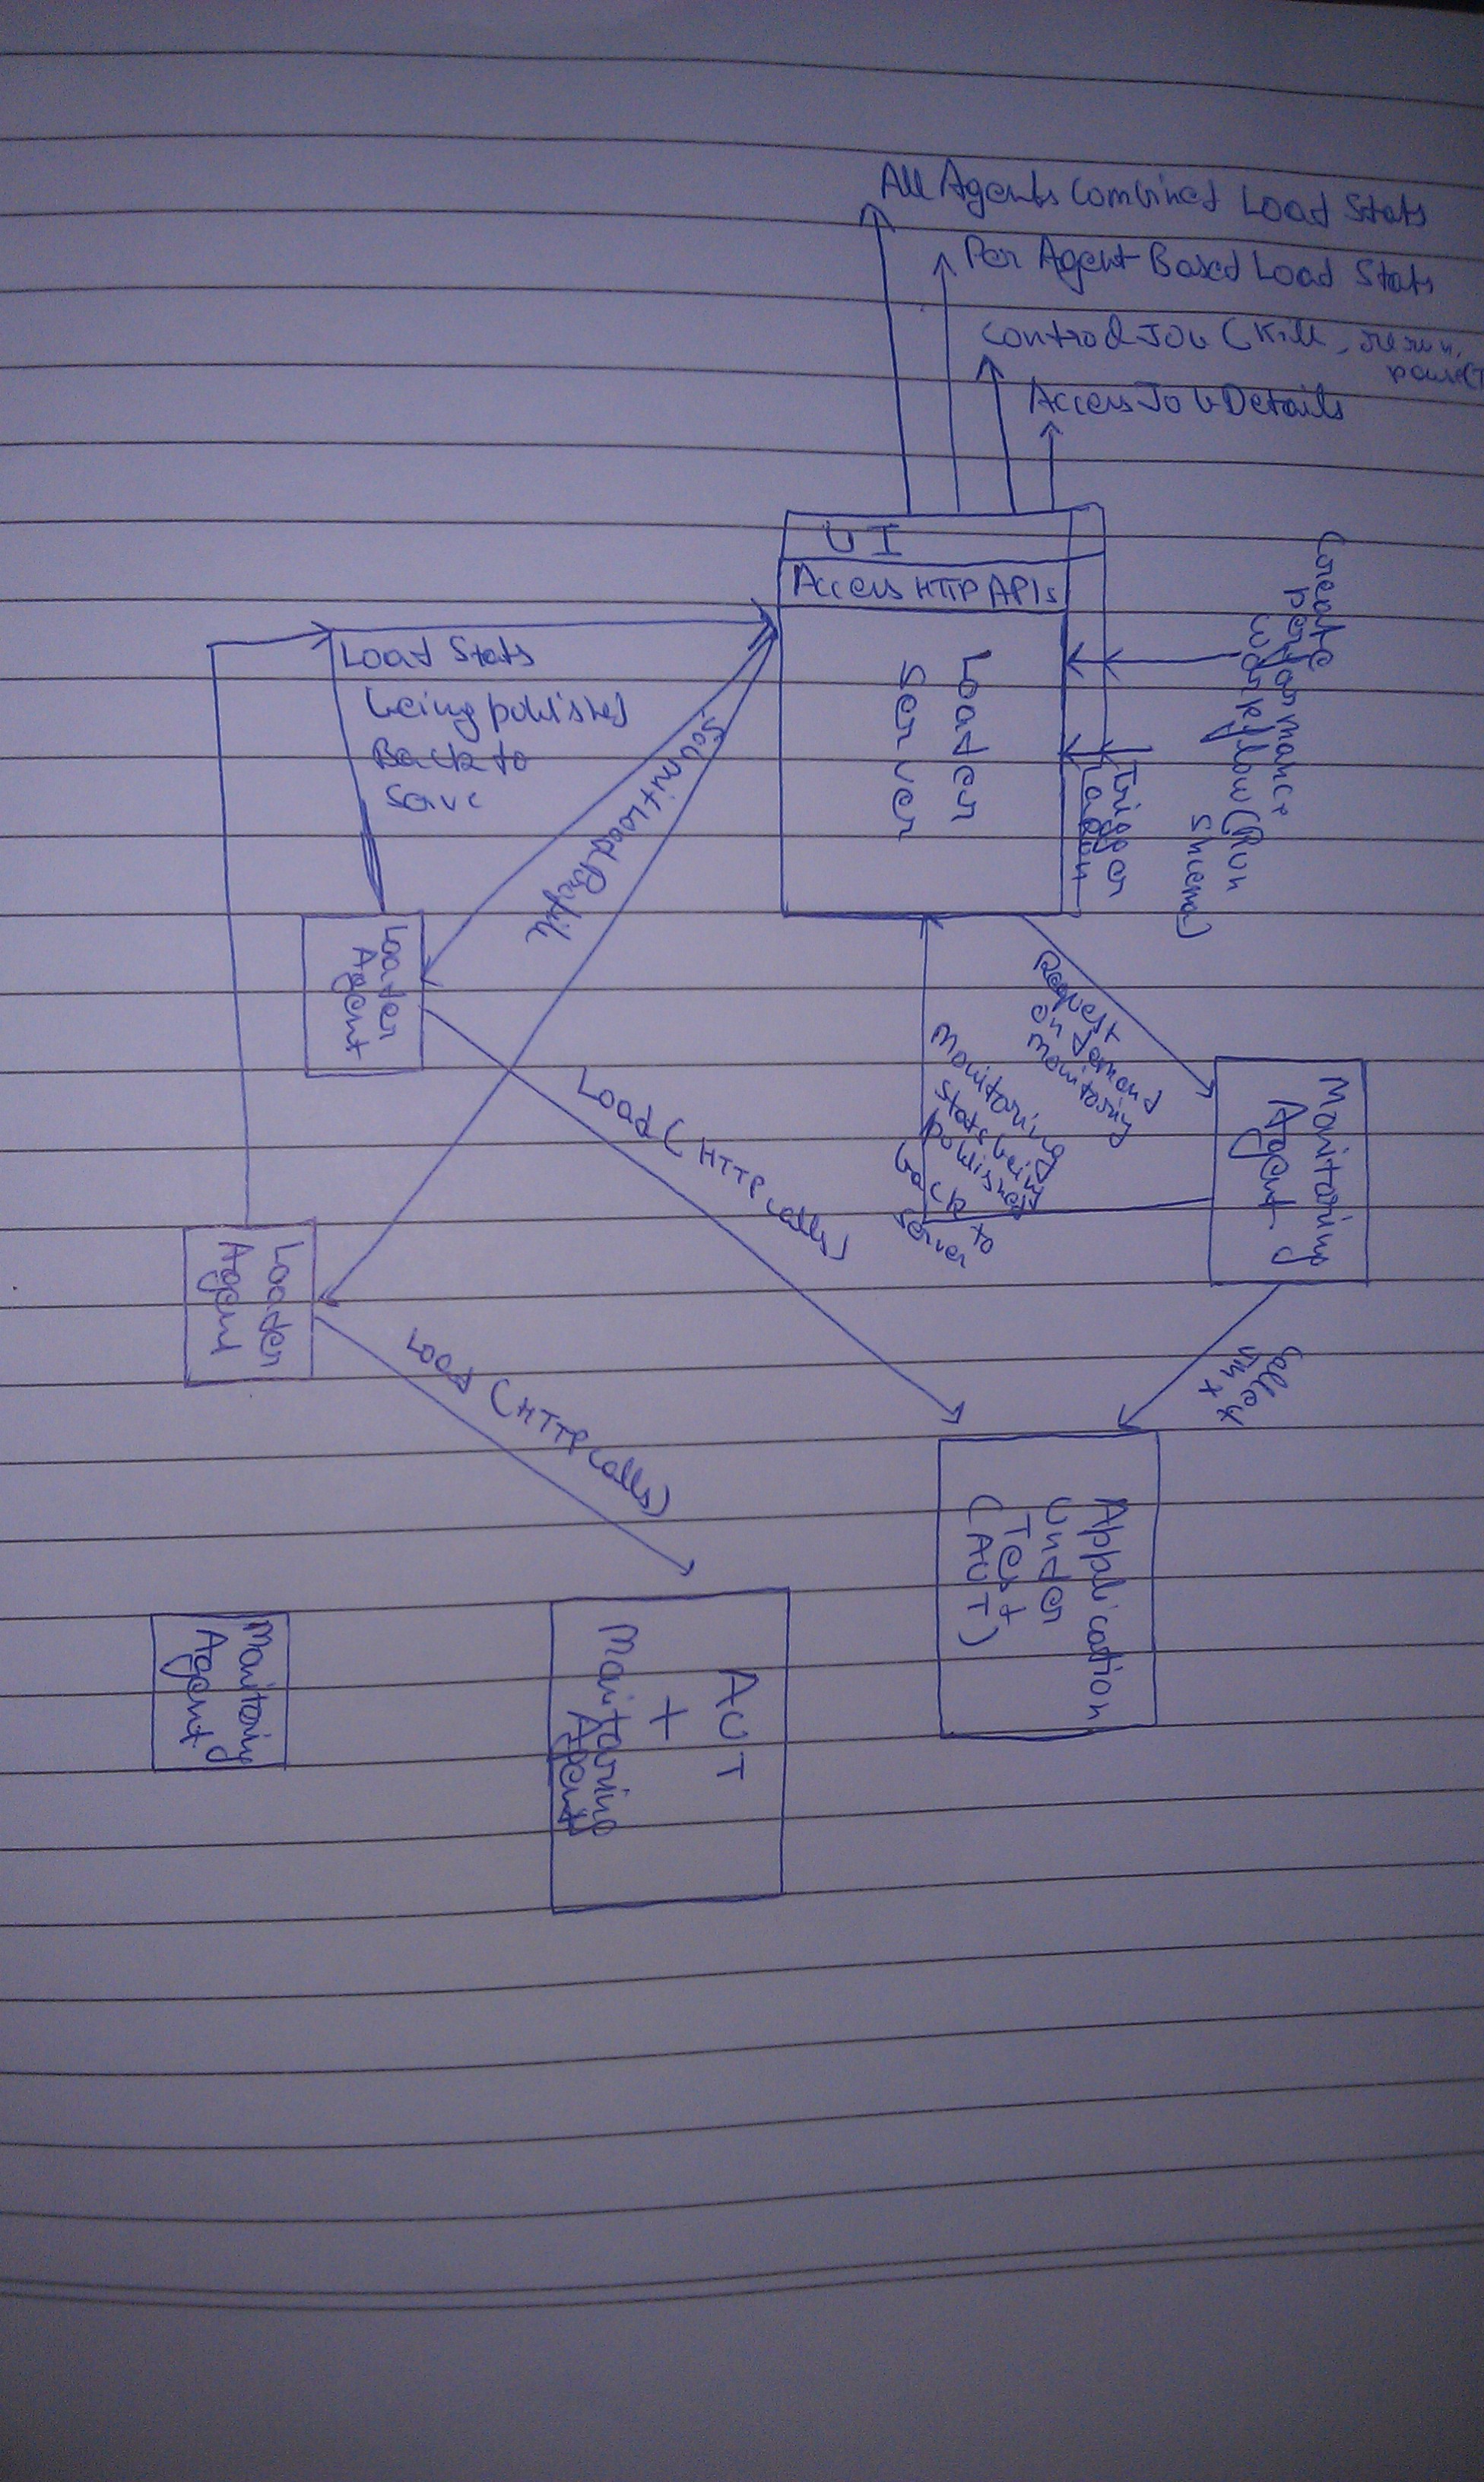 All Agents Combined Load Stats
Per Agent Based Load Stats
Control Job (Kill, rerun,
pause(
Access Job Details
UI
Access HTTP APIs
Loader
Server
Create
performance
Workflow (Run
Shcema)
Trigger
a Run
Load Stats
being publishes
Back to
Serve
Submit Load Profile
Loader
Agent
Loader
Agent
Request
on demand
monitoring
Monitoring
stats being
publishes
back to
server
Monitoring
Agent
Load (HTTP calls)
Load (HTTP calls)
JMX
Application
Under
Test
(AUT)
AUT
+
Monitoring
Agent
Monitoring
Agent